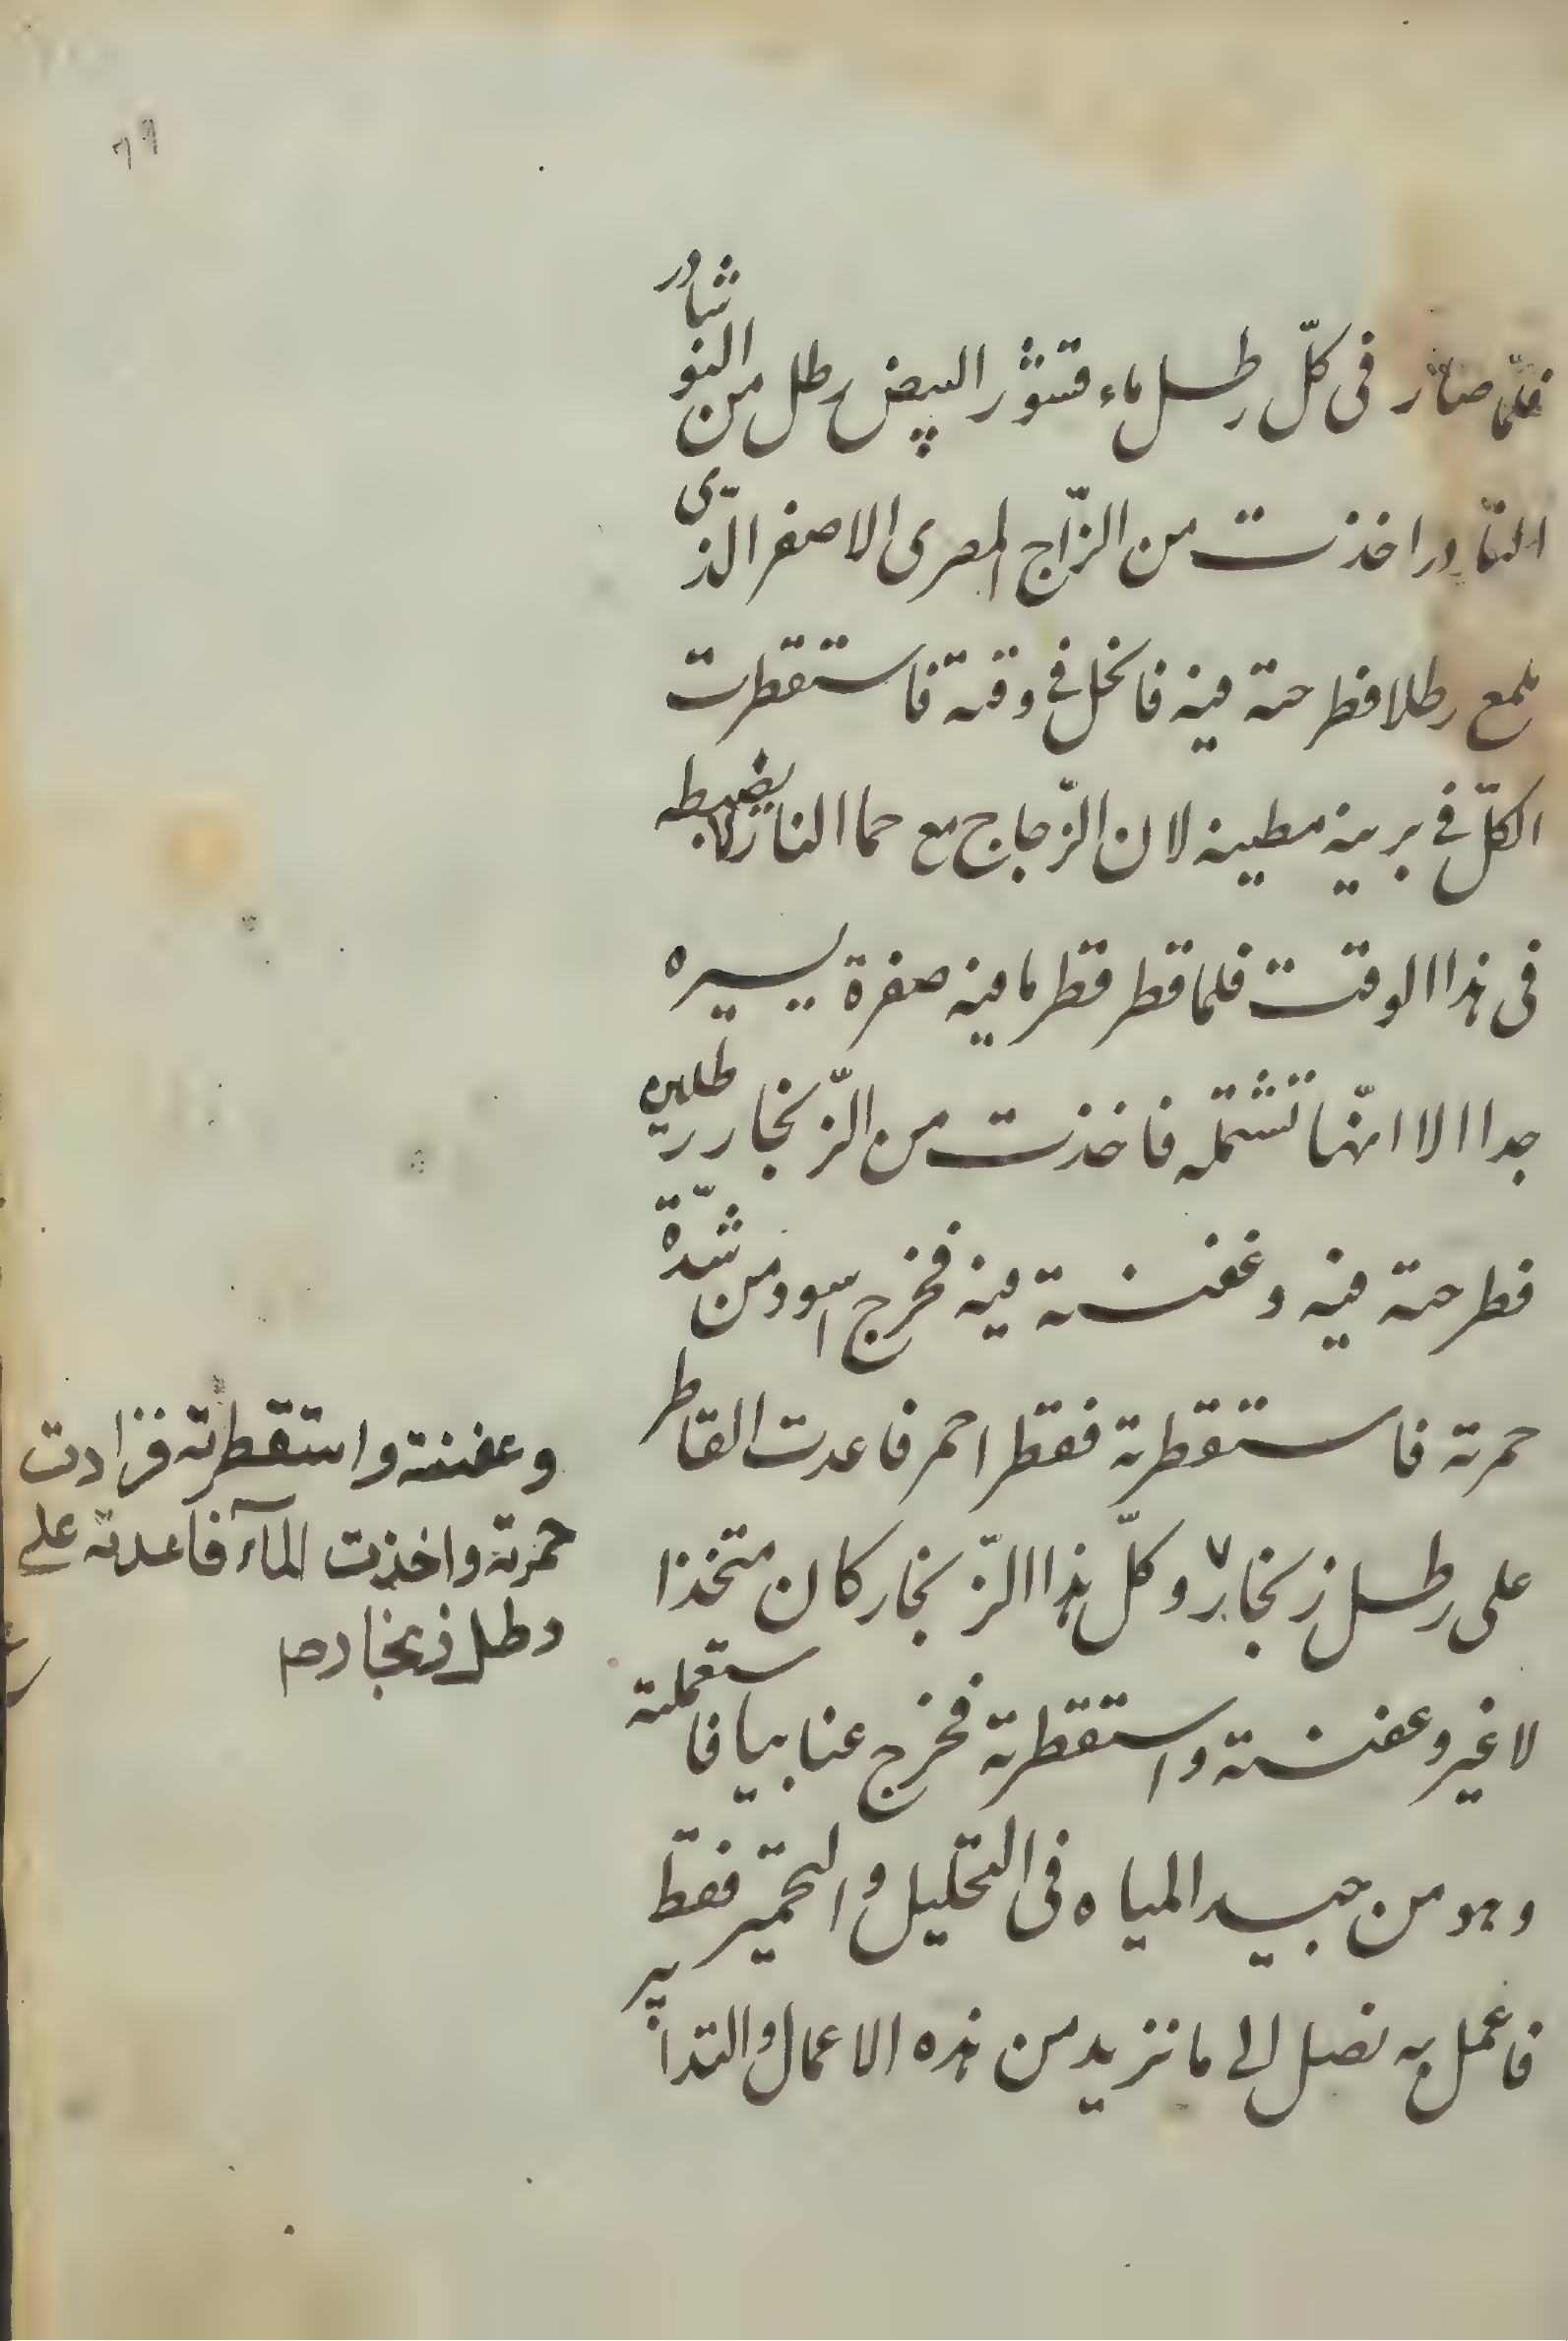 فلمّا صار فى كلّ رطل ماء قشور البيض رطل من النوشادر
النادر اخذت من الزّاج المصرى الاصفر الّذى
يلمع رطلا فطرحته فيه فانحل فى وقته فاستقطرت
الكلّ فى برنية مطينة لان الزّجاج مع حما النار لا يضبطه
فى هذا الوقت فلما قطر قطر ما فيه صفرة يسيره
جدا الا انّها تشتمله فاخذت من الزّنجار رطلين
فطرحته فيه وعفنته فيه فخرج اسود من شدّة
حمرته فاستقطرته فقطر احمر فاعدت القاطر
على رطل زنجار وكلّ هذا الزّنجار كان متخذا
لا غير وعفنته واستقطرته فخرج عنابيا فاستعملته
وهو من جيد المياه فى التحليل والتحمير فقط
فاعمل به تصل الى ما تريد من هذه الاعمال والتدابير
وعفنته واستقطرته فزادت
حمرته واخذت المآء فاعدته على
رطل زنجار صح